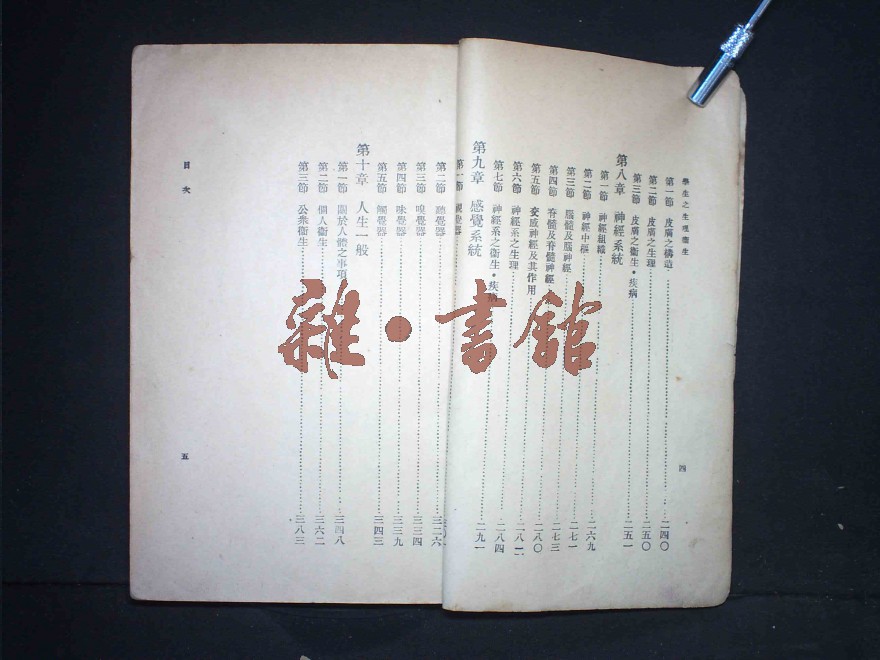 學生之生理衞生
四
第一節 皮膚之構造……二四〇
第二節 皮膚之生理……二五〇
第三節 皮膚之衞生・疾病……二五一
第八章 神經系統
第一節 神經組織……二六九
第二節 神經中樞……二七一
第三節 腦髓及腦神經……二七三
第四節 脊髓及脊髓神經……二八〇
第五節 交感神經及其作用……二八二
第六節 神經系之生理……二八四
第七節 神經系之衞生・疾病……二九一
第九章 感覺系統
第一節 視覺器
第二節 聽覺器……三二六
第三節 嗅覺器……三三四
第四節 味覺器……三三九
第五節 觸覺器……三四三
第十章 人生一般
第一節 關於人體之事項……三四八
第二節 個人衞生……三六二
第三節 公衆衞生……三八三
目次
五
雜・書館